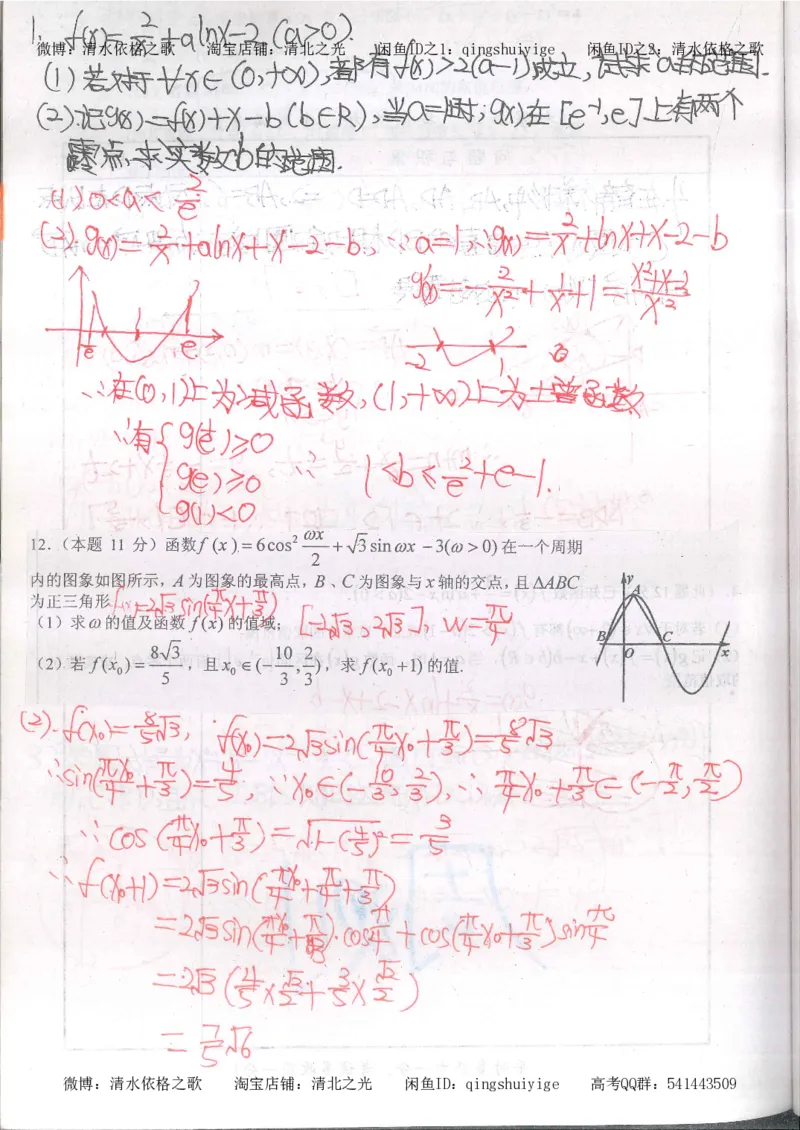 1. f(x)=2/x+alnx-2(a>0).
微博：清水依格之歌 淘宝店铺：清北之光 闲鱼ID之1：qingshuiyige 闲鱼ID之2：清水依格之歌
(1) 若对于∀x∈(0,+∞),都有f(x)>2(a-1)成立,试求a的范围.
(2).记g(x)=f(x)+x-b(b∈R),当a=1时,g(x)在[e⁻¹,e]上有两个
零点,求实数b的范围.
(1).0<a<2/e
(2).g(x)=2/x+alnx+x-2-b, ∵a=1,∴g(x)=2/x+lnx+x-2-b
g'(x)=-2/x²+1/x+1=(x²+x-2)/x²
1/e e
-2 1
∴在(0,1)上为减函数,(1,+∞)上为增函数
∴有{g(1/e)≥0
g(e)≥0 ∴ 1<b≤2/e+e-1.
g(1)<0
12.（本题 11 分）函数f(x)=6cos²ωx/2+√3sinωx-3(ω>0)在一个周期
内的图象如图所示，A为图象的最高点，B、C为图象与x轴的交点，且ΔABC
为正三角形 f(x)=2√3sin(π/4x+π/3)
（1）求ω的值及函数f(x)的值域； [-2√3,2√3], w=π/4
（2）若f(x₀)=8√3/5，且x₀∈(-10/3,2/3)，求f(x₀+1)的值.
y
A
B O C x
(2).f(x₀)=8/5√3, f(x₀)=2√3sin(π/4x₀+π/3)=8/5√3
∴sin(πx₀/4+π/3)=4/5, ∵x₀∈(-10/3,2/3),∴π/4x₀+π/3∈(-π/2,π/2)
∴cos(π/4x₀+π/3)=√1-(4/5)²=3/5
∴f(x₀+1)=2√3sin(πx₀/4+π/4+π/3)
=2√3sin(πx₀/4+π/3)·cosπ/4+cos(π/4x₀+π/3)sinπ/4
=2√3(4/5×√2/2+3/5×√2/2)
=7/5√6
微博：清水依格之歌 淘宝店铺：清北之光 闲鱼ID：qingshuiyige 高考QQ群：541443509